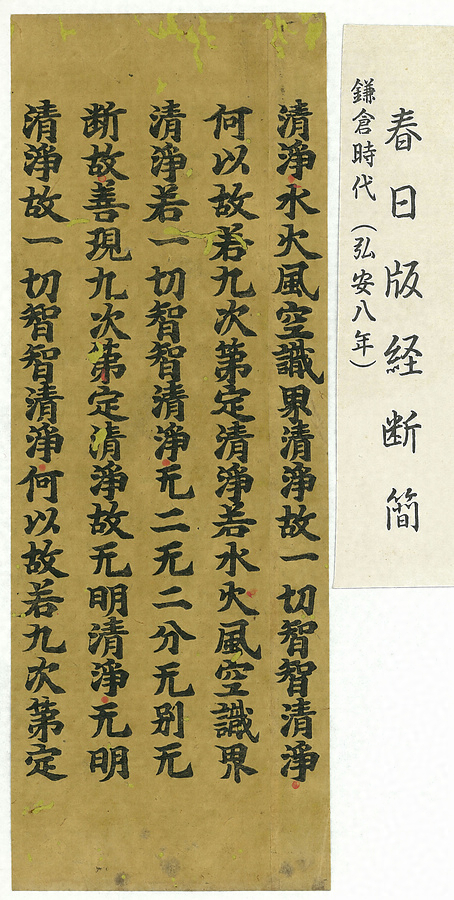 春日版経断簡
鎌倉時代(弘安八年)
清淨水火風空識界清淨故一切智智清淨
何以故若九次第定清淨若水火風空識界
清淨若一切智智清淨无二无二分无别无
断故善現九次第定清淨故无明清淨无明
清淨故一切智智清淨何以故若九次第定